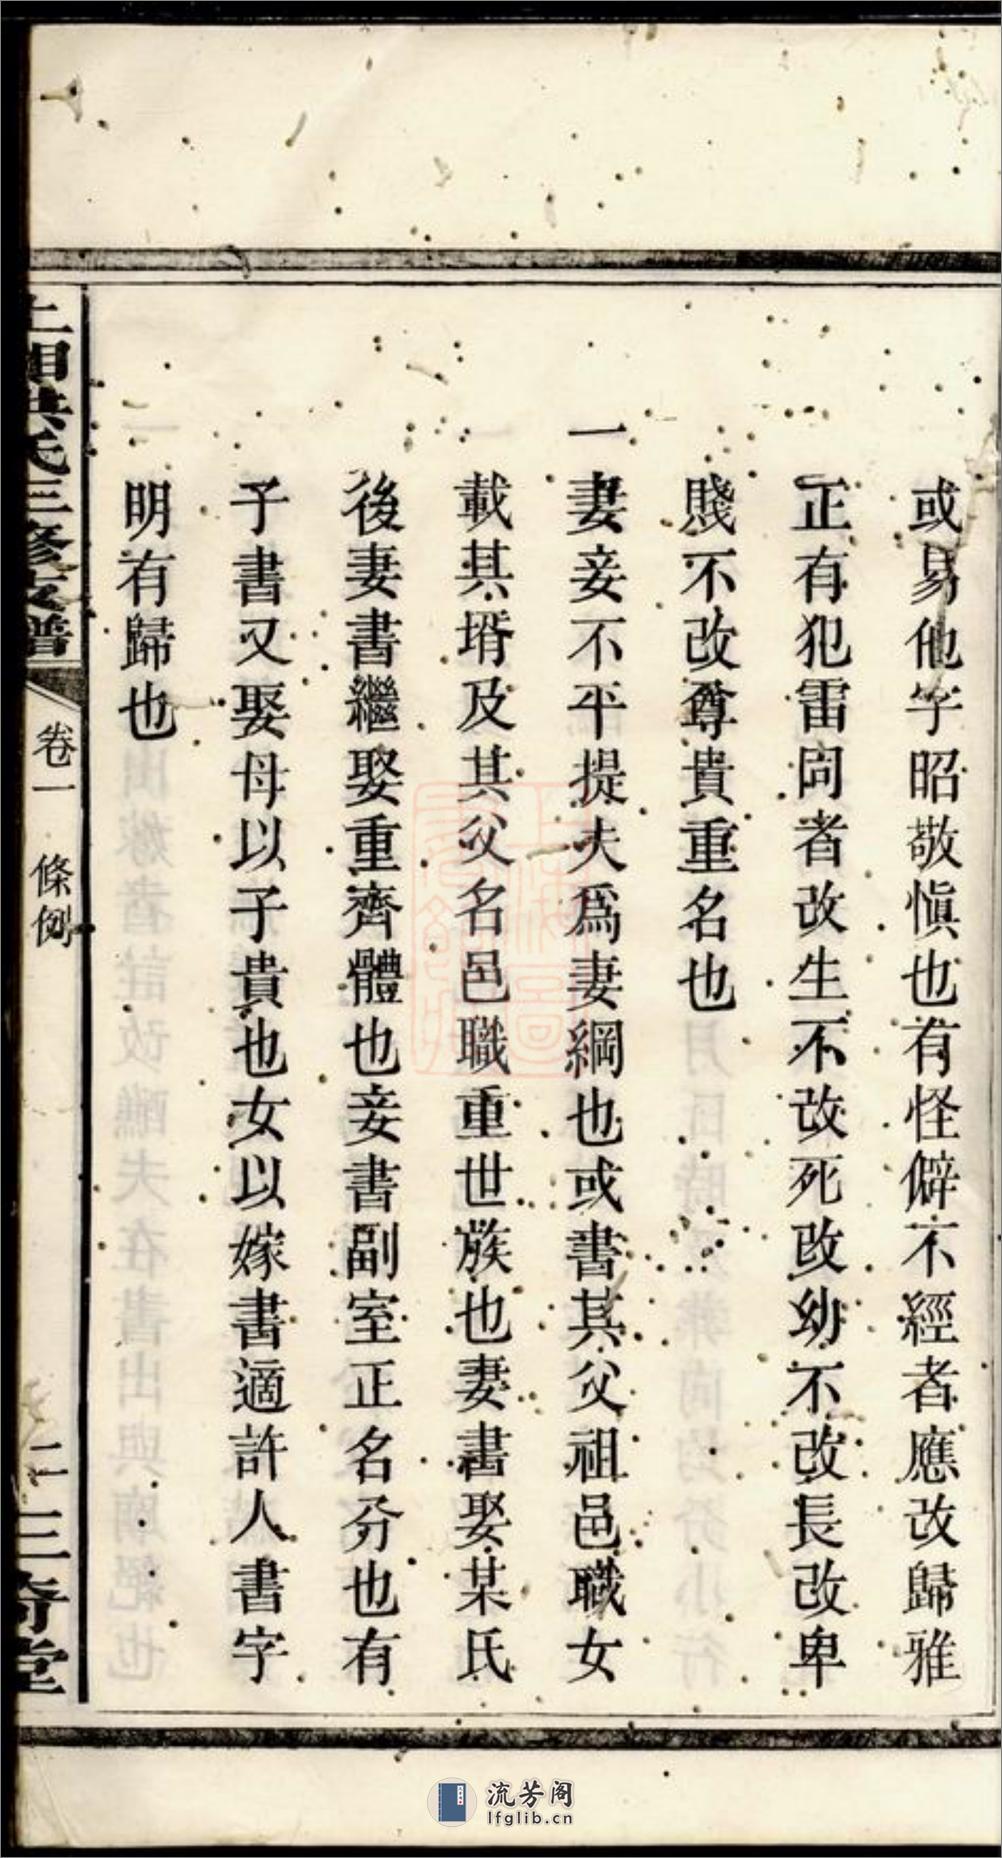 或易他字昭敬慎也有怪僻不經者應改歸雅
正有犯雷同者改生不改死改幼不改長改卑
賤不改尊貴重名也
一妻妾不平提夫爲妻綱也或書其父祖邑職女
載其壻及其父名邑職重世族也妻書娶某氏
後妻書繼娶重齊體也妾書副室正名分也有
子書又娶母以子貴也女以嫁書適許人書字
明有歸也
上湘洪氏三修支譜
卷一 條例
二 三奇堂
流芳阁
lfglib.cn